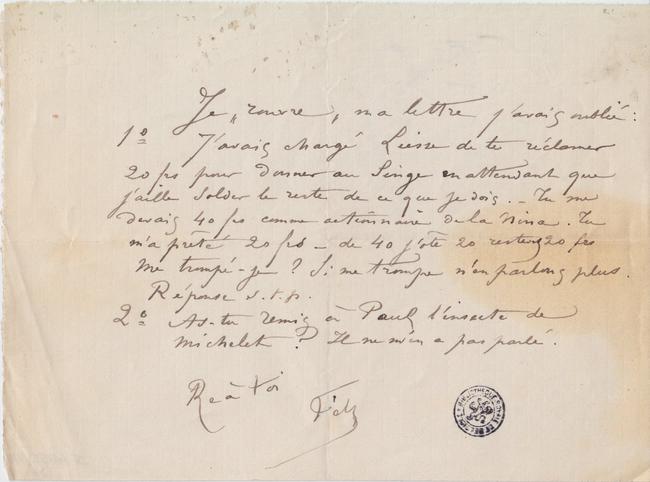 Je „ rouvre „ ma lettre j'avais oublié :
1o J'avais chargé Liesse de te réclamer
20 frs pour donner au Singe en attendant que
j'aille solder le reste de ce que je dois. — Tu me
devais 40 frs comme actionnaire de la Nina. Tu
m'a prêté 20 frs — de 40 j'ôte 20 restent 20 frs
Me trompé-je ? Si me trompe n'en parlons plus.
Réponse s.t.p.
2o As-tu remis à Paul l'insecte de
Michelet ? Il ne m'en a pas parlé.
Re à toi
BIBLIOTHEQUE ROYALE DE BELGIQUE